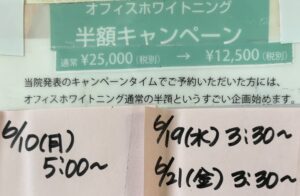 オフィスホワイトニング
半額キャンペーン
通常 ¥25,000(税別) → ¥12,500(税別)
当院発表のキャンペーンタイムでご予約いただいた方には、
オフィスホワイトニング通常の半額というすごい企画始めます。
6/10(月)
5:00~
6/19(水) 3:30~
6/21(金) 3:30~